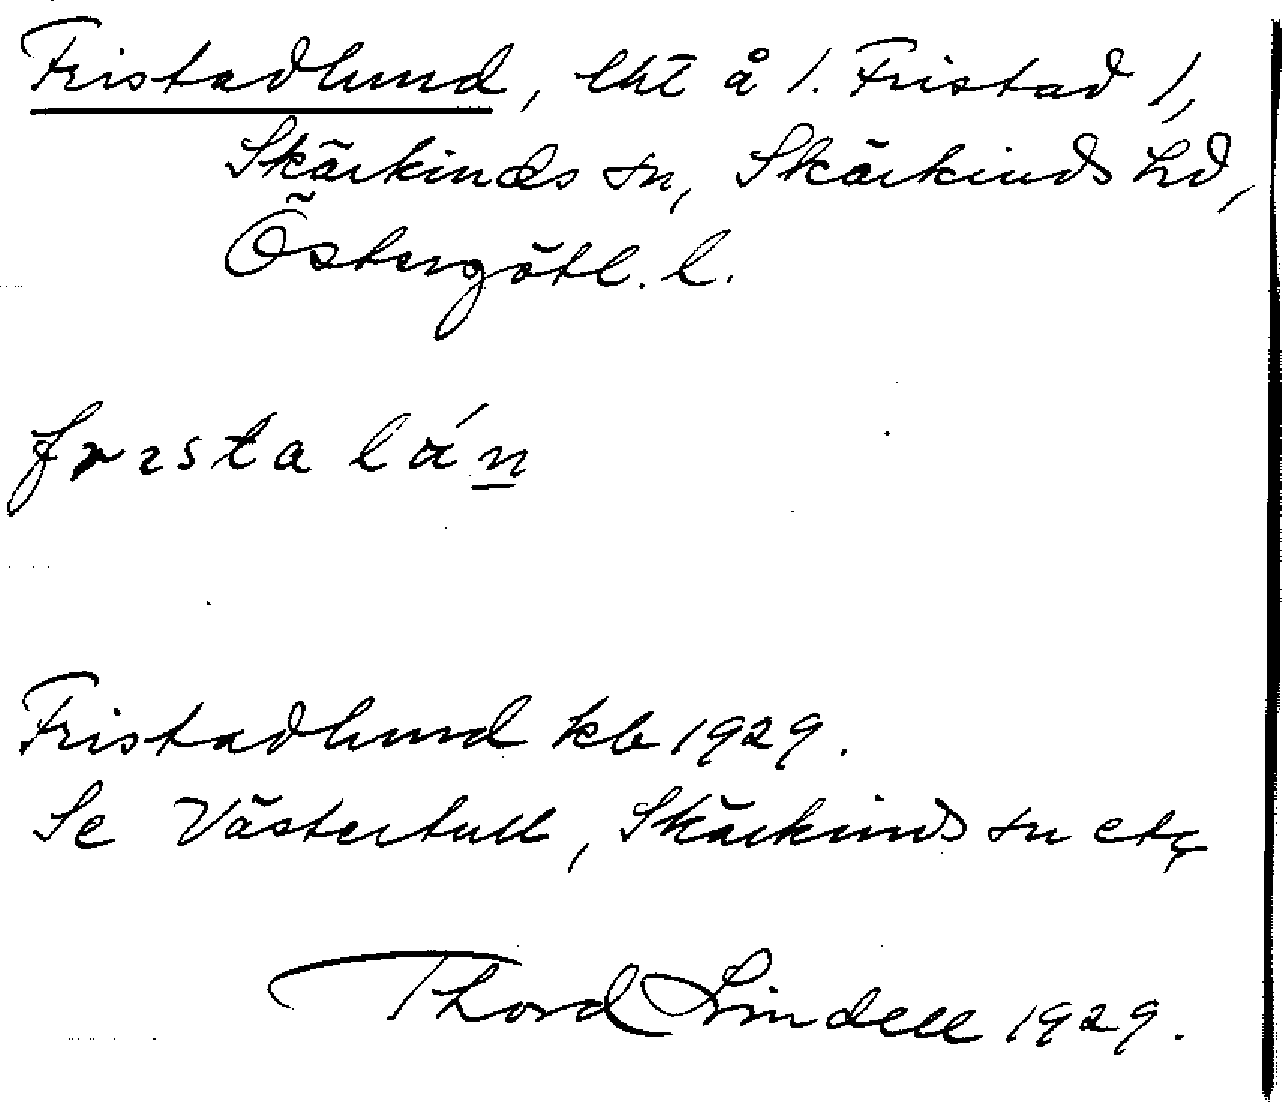 Fristadlund, lht å 1. Fristad 1,
Skärkinds sn, Skärkinds hd,
Östergötl. l.
frısta lán
Fristadlund kb 1929.
Se Västertull, Skärkinds sn etc
Thord Lindell 1929.